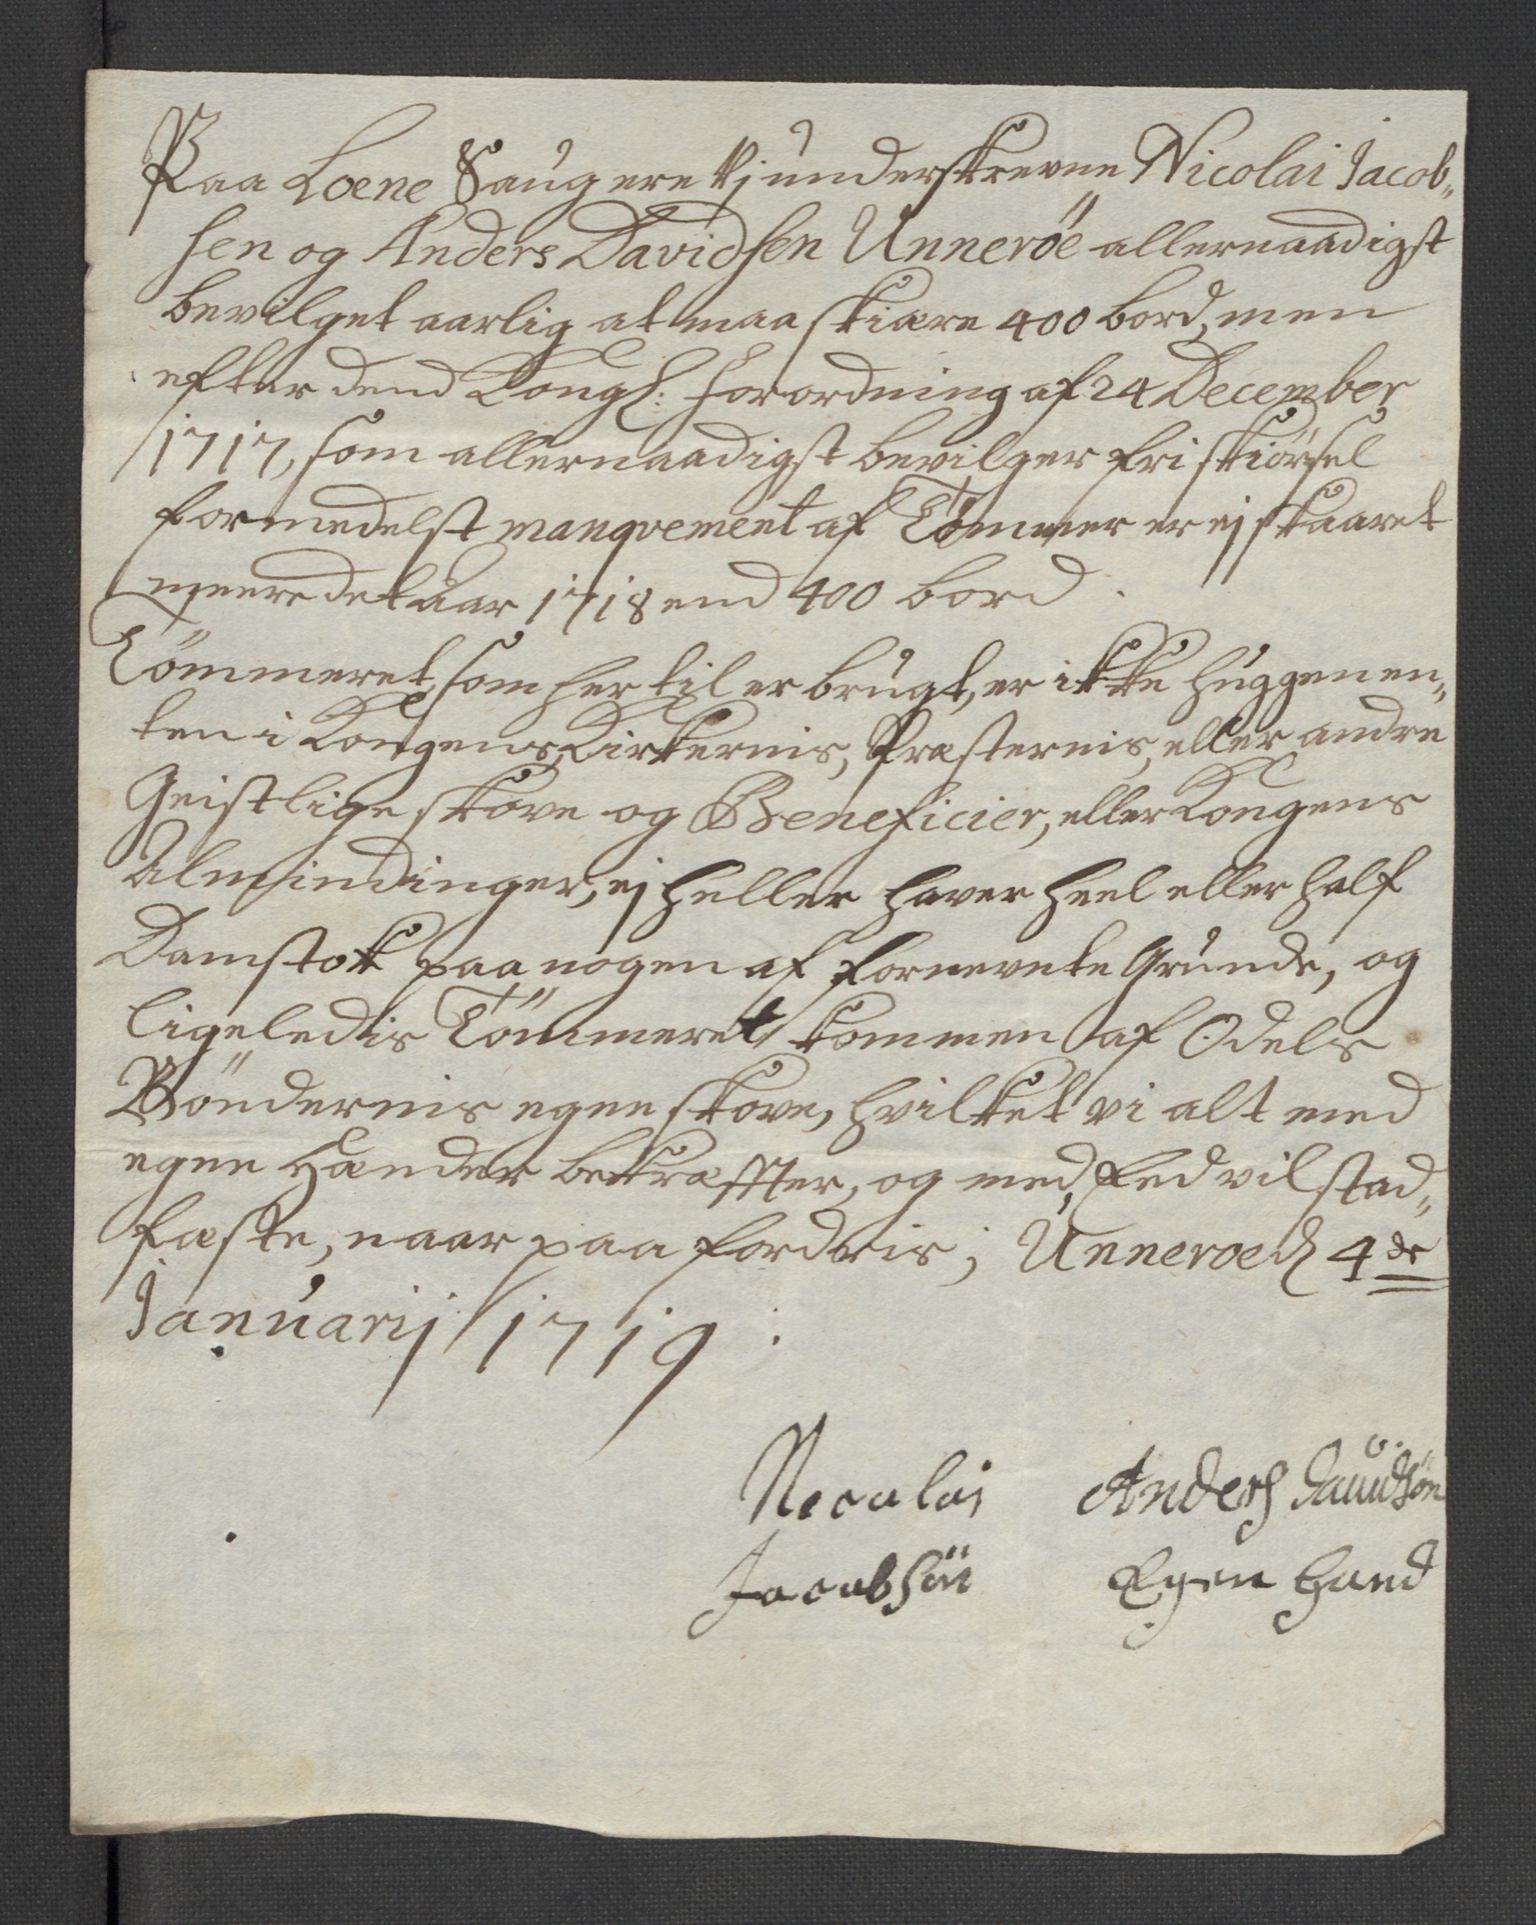 Paa Loene Saug ere Vj underskrevne Nicolai Jacob„
sen og Anders Davidsen Unneröe allernaadigst
bevilget aarlig at maa skiære 400 bord, men
efter dend Kongl: Forordning af 24 December
1717, som allernaadigst bevilger fri skiörsel
formedelst manqvement af Tömmer er ej skaaret
meere det aar 1718 end 400 bord.
Tömmeret, som her til er brugt, er ikke huggen en„
ten i Kongens, Kirkernis, Præsternis, eller andre
Geistlige skove og Beneficier, eller Kongens
Almindinger, ej heller haver heel eller half
Damstok paa nogen af fornevnte Grunde, og
ligeledis Tömmeret kommen af Odels
Böndernis egne skove, hvilket vi alt med
egne Hænder bekræffter, og med Eed vil stad„
fæste, naar paa fordris; Unneroe d 4de
Januarij 1719.
Necolai Anders Dauidsön
Jacobsön Egen Hand